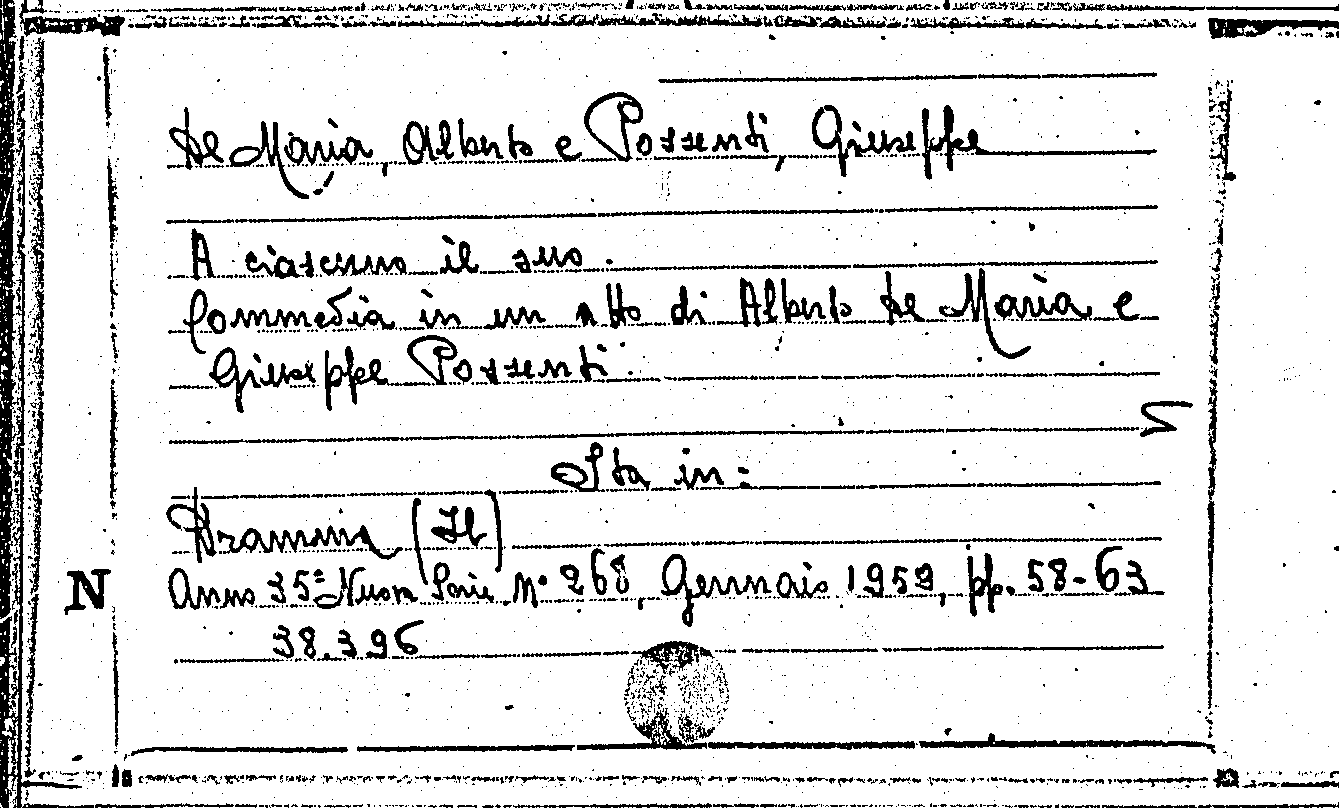 De Maria, Alberto e Possenti, Giuseppe
A ciascuno il suo.
Commedia in un atto di Alberto De Maria e
Giuseppe Possenti.
Sta in:
Dramma (Il)
N Anno 35° Nuova Serie N° 268, Gennaio 1959, pp. 58-63
38.396